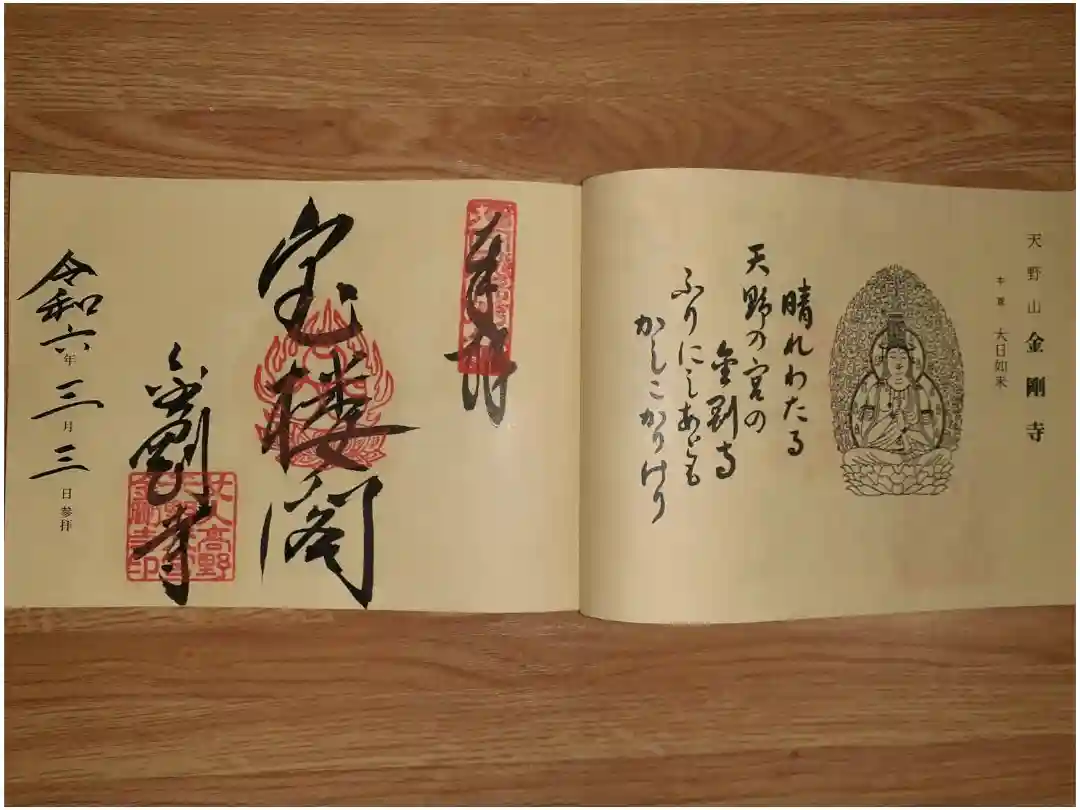 天野山 金剛寺
本尊 大日如来
晴れわたる
天野の宮の
金剛寺
ふりにしあとも
かしこかりけり
奉拝
宝楼閣
金剛寺
女人高野
令和六年三月三日参拝